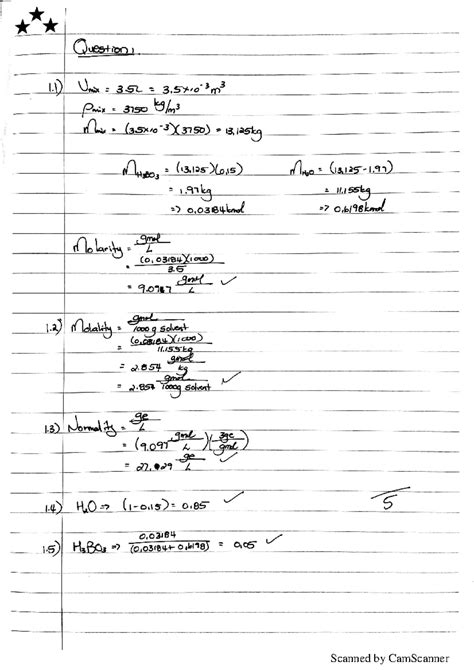 Question 1
1.1) Vmix = 3.5L = 3.5×10⁻³ m³
ρmix = 3750 kg/m³
mmix = (3.5×10⁻³)(3750) = 13,125kg
mH₃BO₃ = (13,125)(0,15) mH₂O = (13,125-1.97)
= 1.97kg = 11.155kg
=> 0.03184kmol => 0.6198kmol
Molarity = gmol/L
= (0.03184)(1000)/3.5
= 9.0987 gmol/L ✓
1.2) Molality = gmol/1000g solvent
= (0.03184)(1000)/11.155kg
= 2.854 gmol/kg
= 2.854 gmol/1000g solvent ✓
1.3) Normality = ge/L
= (9.097 gmol/L)(3ge/gmol)
= 27.29 ge/L ✓
1.4) H₂O => (1-0.15) = 0.85 ✓
5
1.5) H₃BO₃ => 0.03184/(0.03184+0.6198) = 0,05 ✓
Scanned by CamScanner